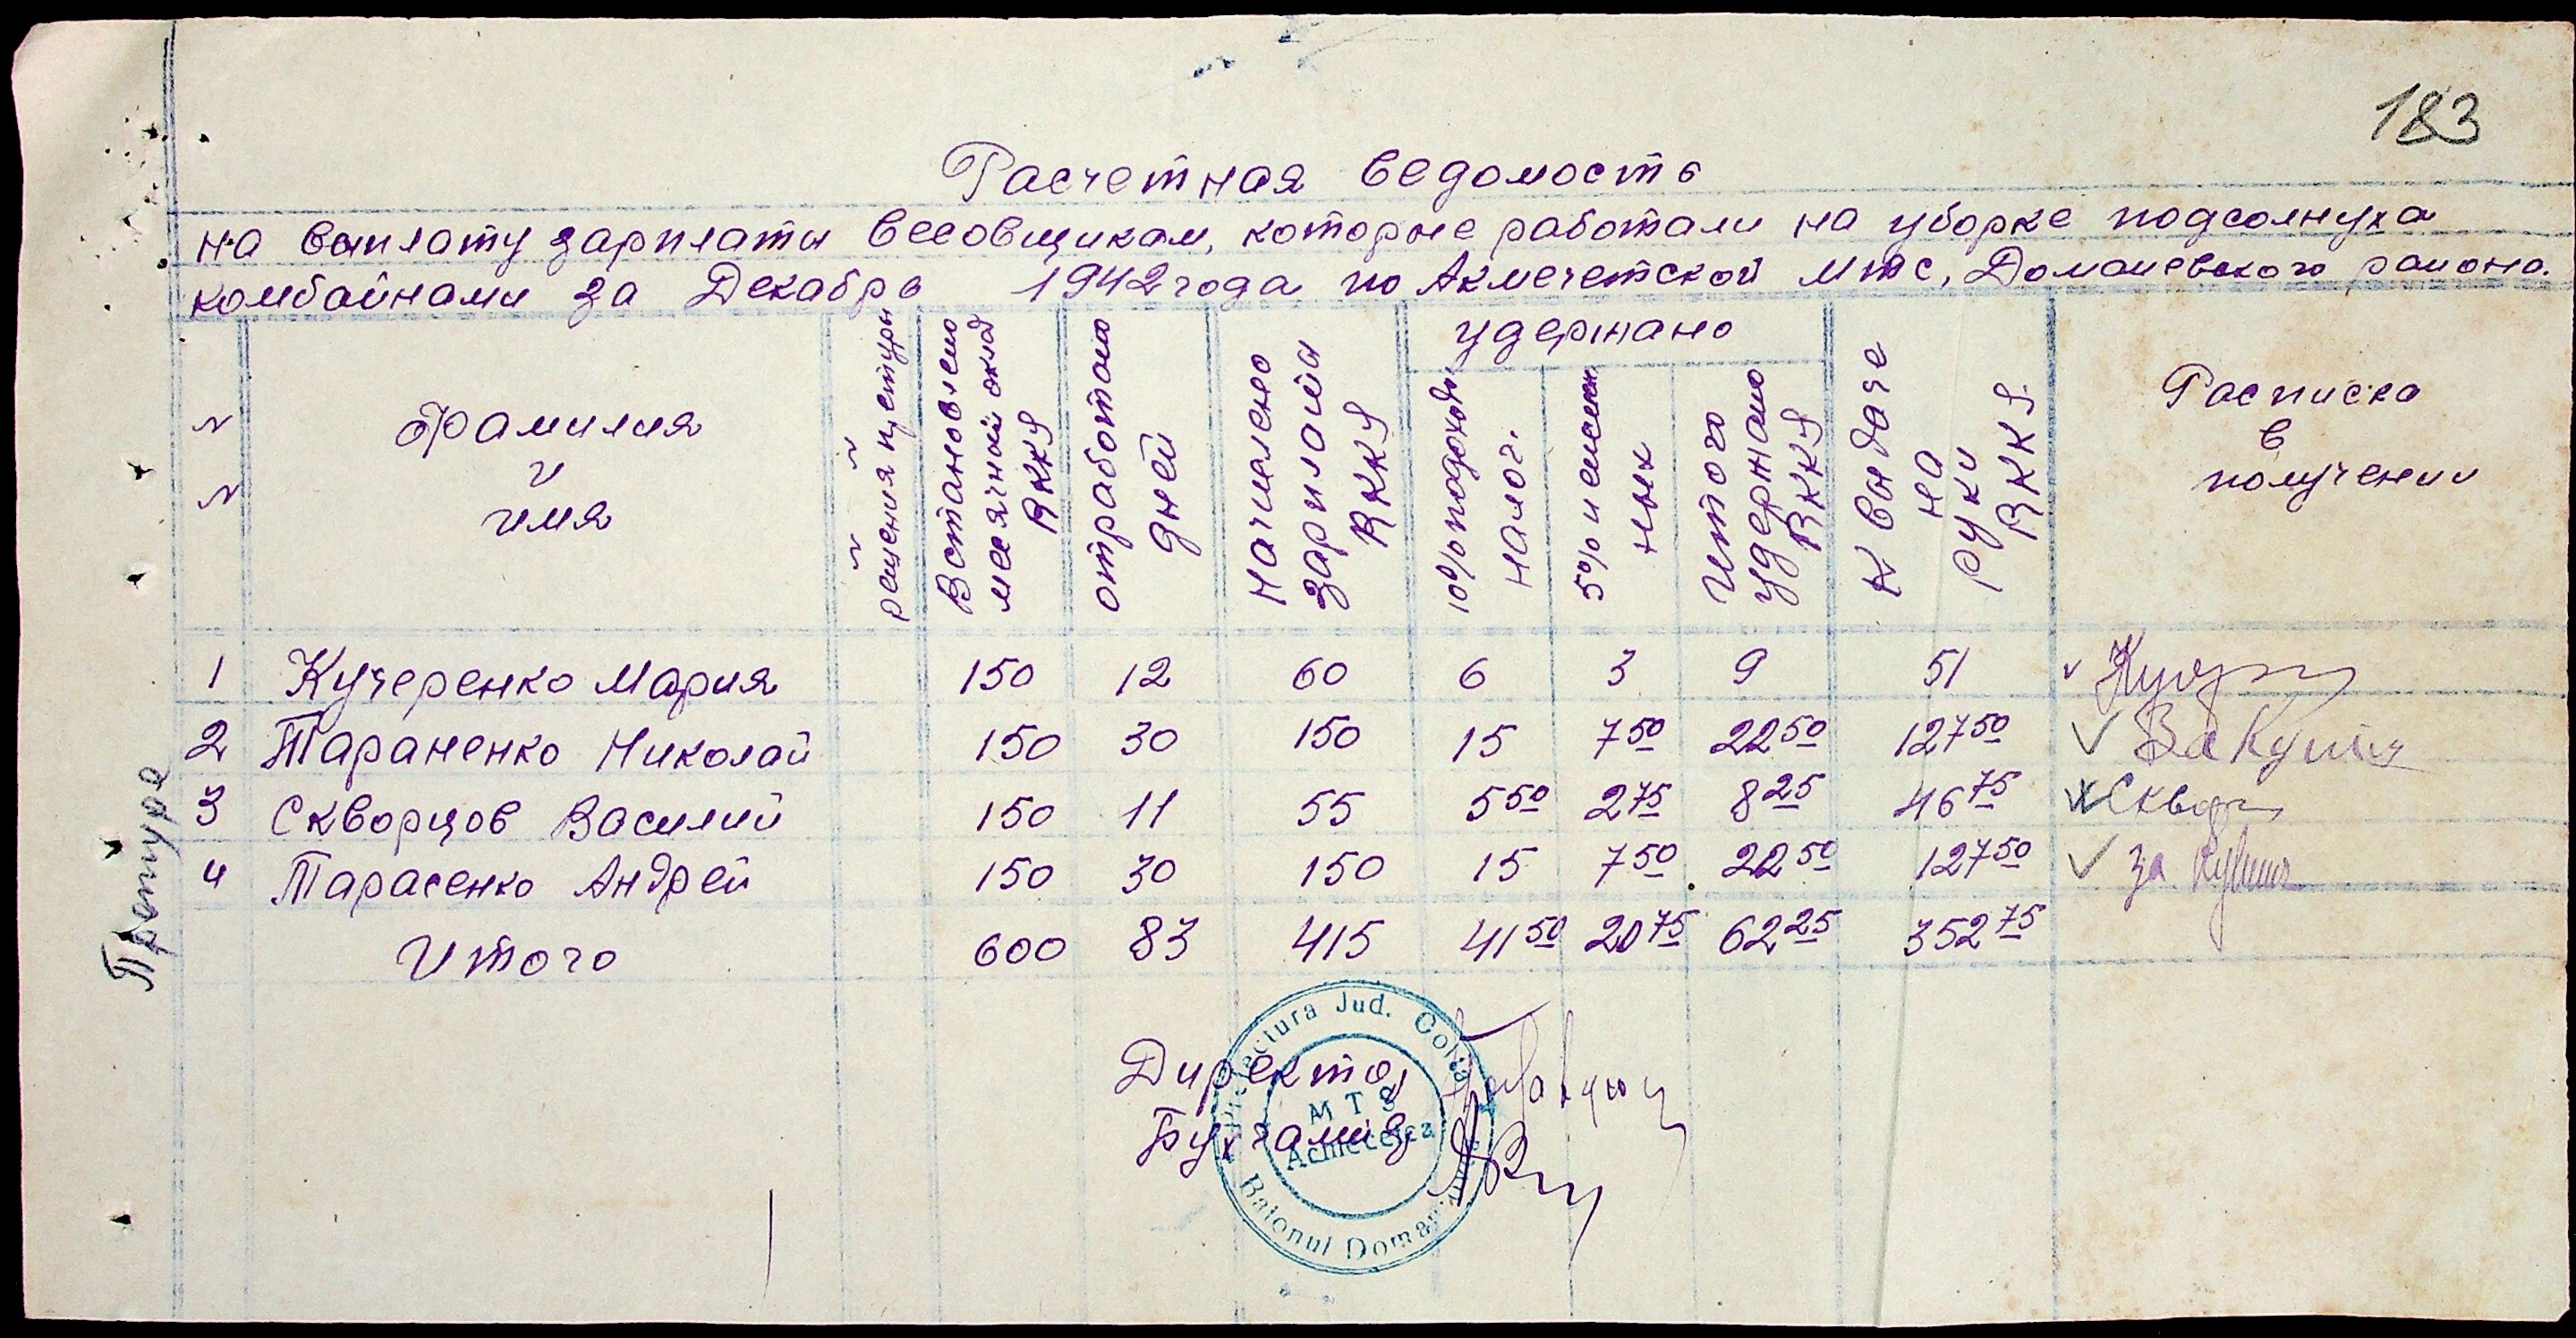 183
Расчетная ведомость
на выплату зарплаты весовщикам, которые работали на уборке подсолнуха
комбайнами за Декабрь 1942 года по Акмечетской МТС, Доманевского района.
N N
Фамилия и имя
N N решения претуры
Встановлено месячный оклад RKKS
отработано дней
Начислено зарплаты RKKS
удержано
10% подоходн. налог.
5%
Итого удержано RKKS
К выдаче на руки RKKS.
Расписка в получении
1 Кучеренко Мария 150 12 60 6 3 9 51
2 Тараненко Николай 150 30 150 15 7 50 22 50 127 50 За
3 Скворцов Василий 150 11 55 5 50 2 75 8 25 46 75 Сквор
4 Тарасенко Андрей 150 30 150 15 7 50 22 50 127 50 за
Итого 600 83 415 41 50 20 75 62 25 352 75
Претура
Директор
Бухгалтер
Prefectura Jud. Golta
MTS
Acmecetca
Raionul Domanevca